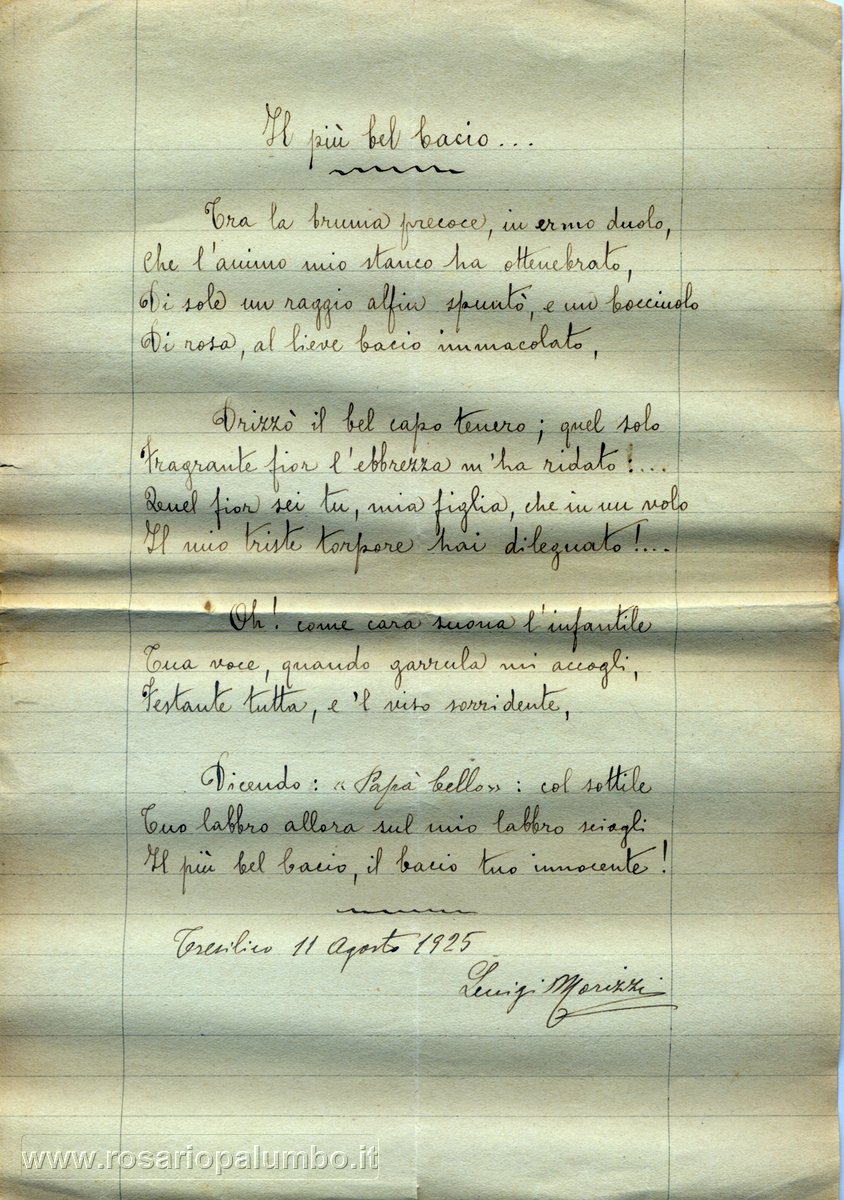 Il più bel bacio...
Tra la bruma precoce, in ermo duolo,
Che l'animo mio stanco ha ottenebrato,
Di sole un raggio alfin spuntò, e un bocciuolo
Di rosa, al lieve bacio immacolato,
Drizzò il bel capo tenero; quel solo
Fragrante fior l'ebbrezza m'ha ridato!...
Quel fior sei tu, mia figlia, che in un volo
Il mio triste torpore hai dileguato!...
Oh! come cara suona l'infantile
Tua voce, quando garrula mi accogli,
Festante tutta, e 'l viso sorridente,
Dicendo: «Papà bello»: col sottile
Tuo labbro allora sul mio labbro sciogli
Il più bel bacio, il bacio tuo innocente!
Tresilico 11 Agosto 1925
Luigi Morizzi
www.rosariopalumbo.it